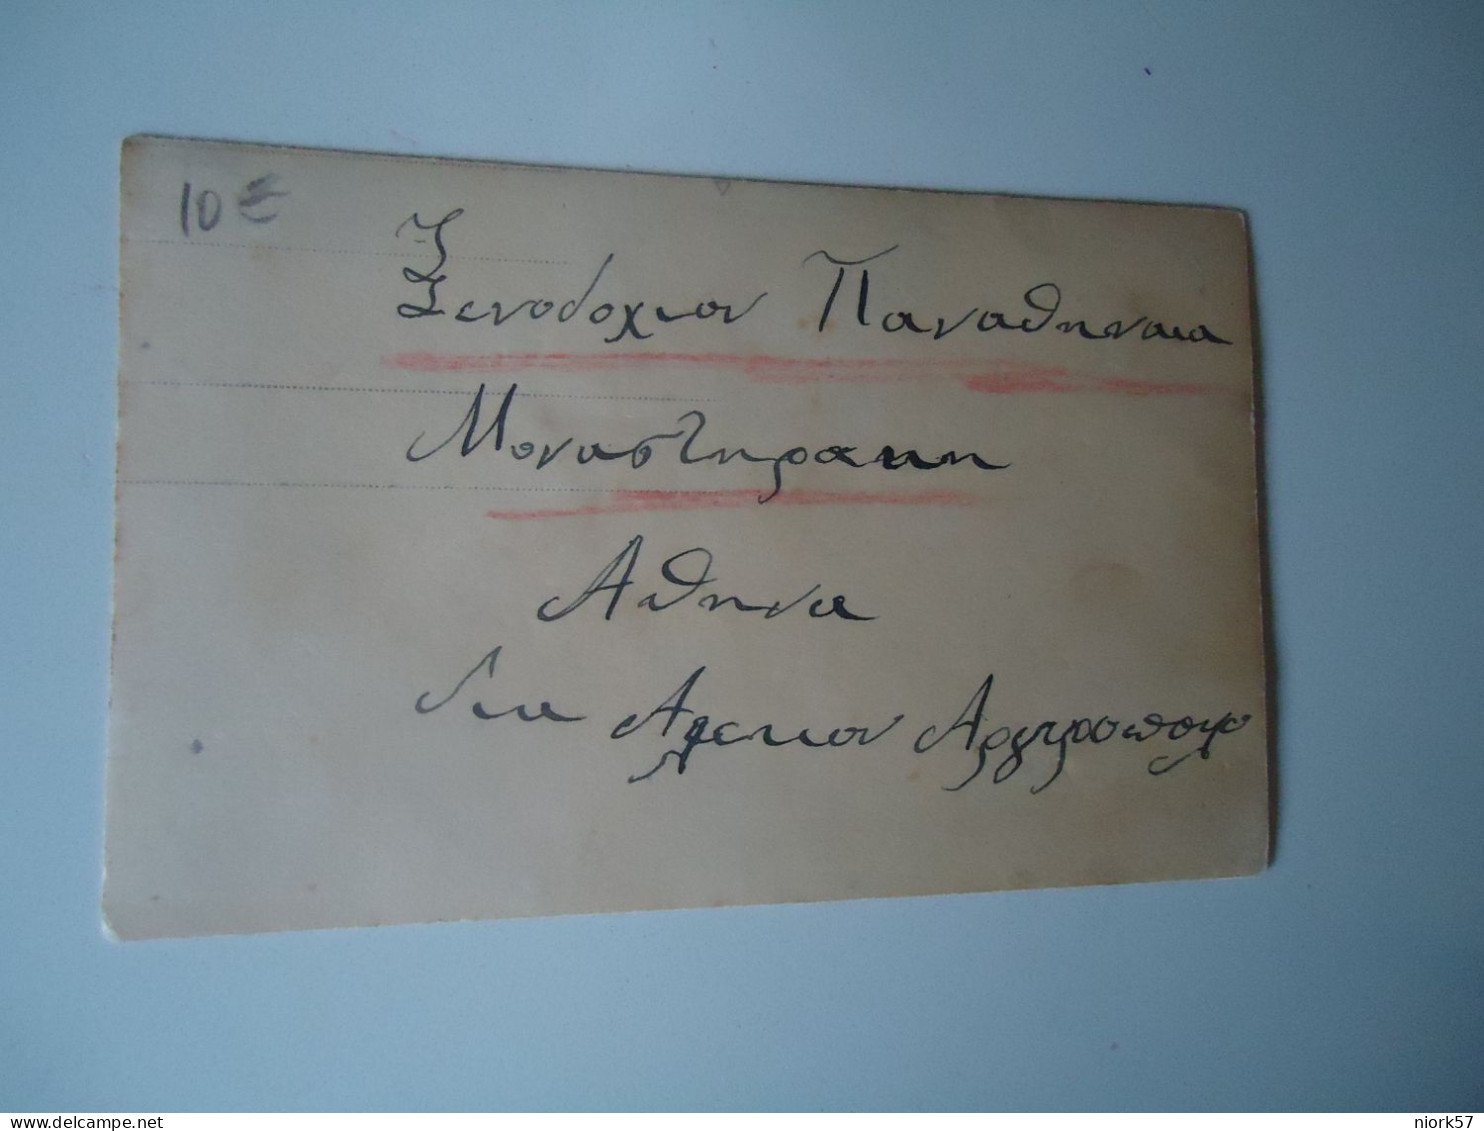 10 €
Ξενοδοχιον Παναθηναια
Μοναστηρακη
Αθηνα
δια Αλεκιον Αργυροπουλο
delcampe.net
niork57